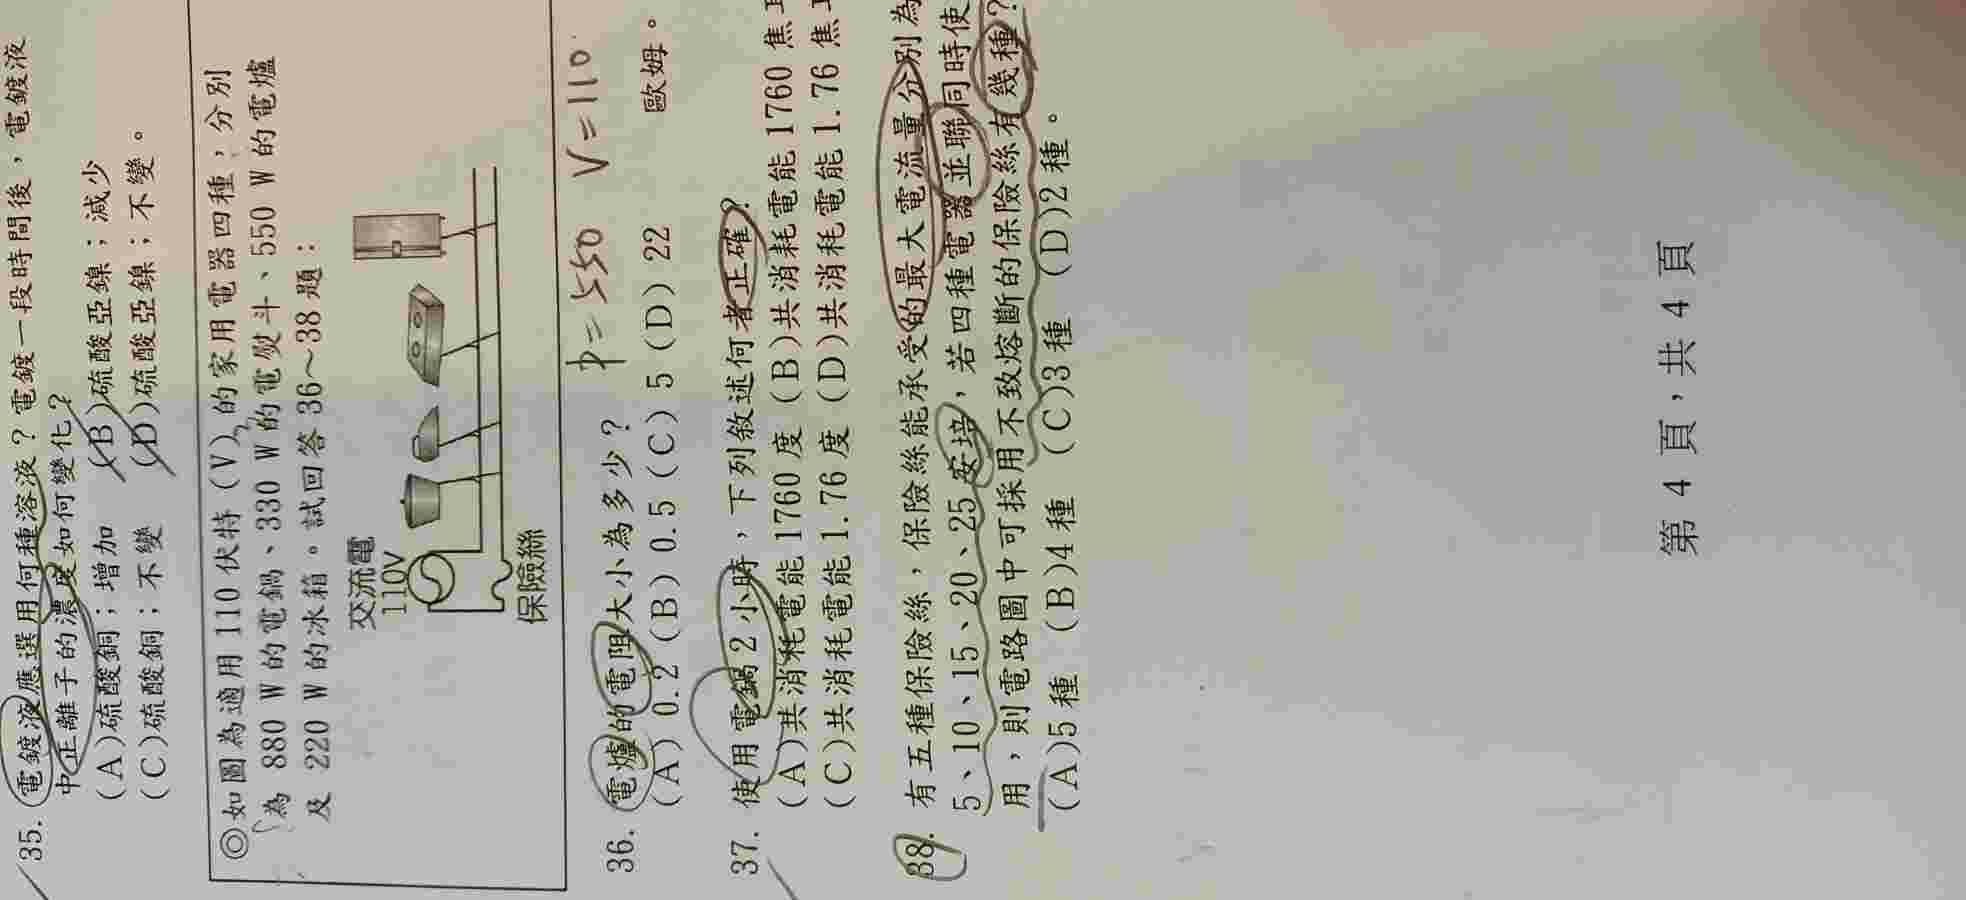 35. 電鍍液應選用何種溶液？電鍍一段時間後，電鍍液
中正離子的濃度如何變化？
(A)硫酸銅；增加 (B)硫酸亞鎳；減少
(C)硫酸銅；不變 (D)硫酸亞鎳；不變。
◎如圖為適用110伏特(V)的家用電器四種，分別
為 880 W的電鍋、330 W的電熨斗、550 W的電爐
及 220 W的冰箱。試回答36～38題：
交流電
110V
保險絲
P=550 V=110
36. 電爐的電阻大小為多少？
(A) 0.2 (B) 0.5 (C) 5 (D) 22 歐姆。
37. 使用電鍋2小時，下列敘述何者正確？
(A)共消耗電能1760度 (B)共消耗電能1760焦
(C)共消耗電能1.76度 (D)共消耗電能1.76焦
38. 有五種保險絲，保險絲能承受的最大電流量分別為
5、10、15、20、25安培，若四種電器並聯同時使
用，則電路圖中可採用不致熔斷的保險絲有幾種？
(A)5種 (B)4種 (C)3種 (D)2種。
第 4 頁，共 4 頁